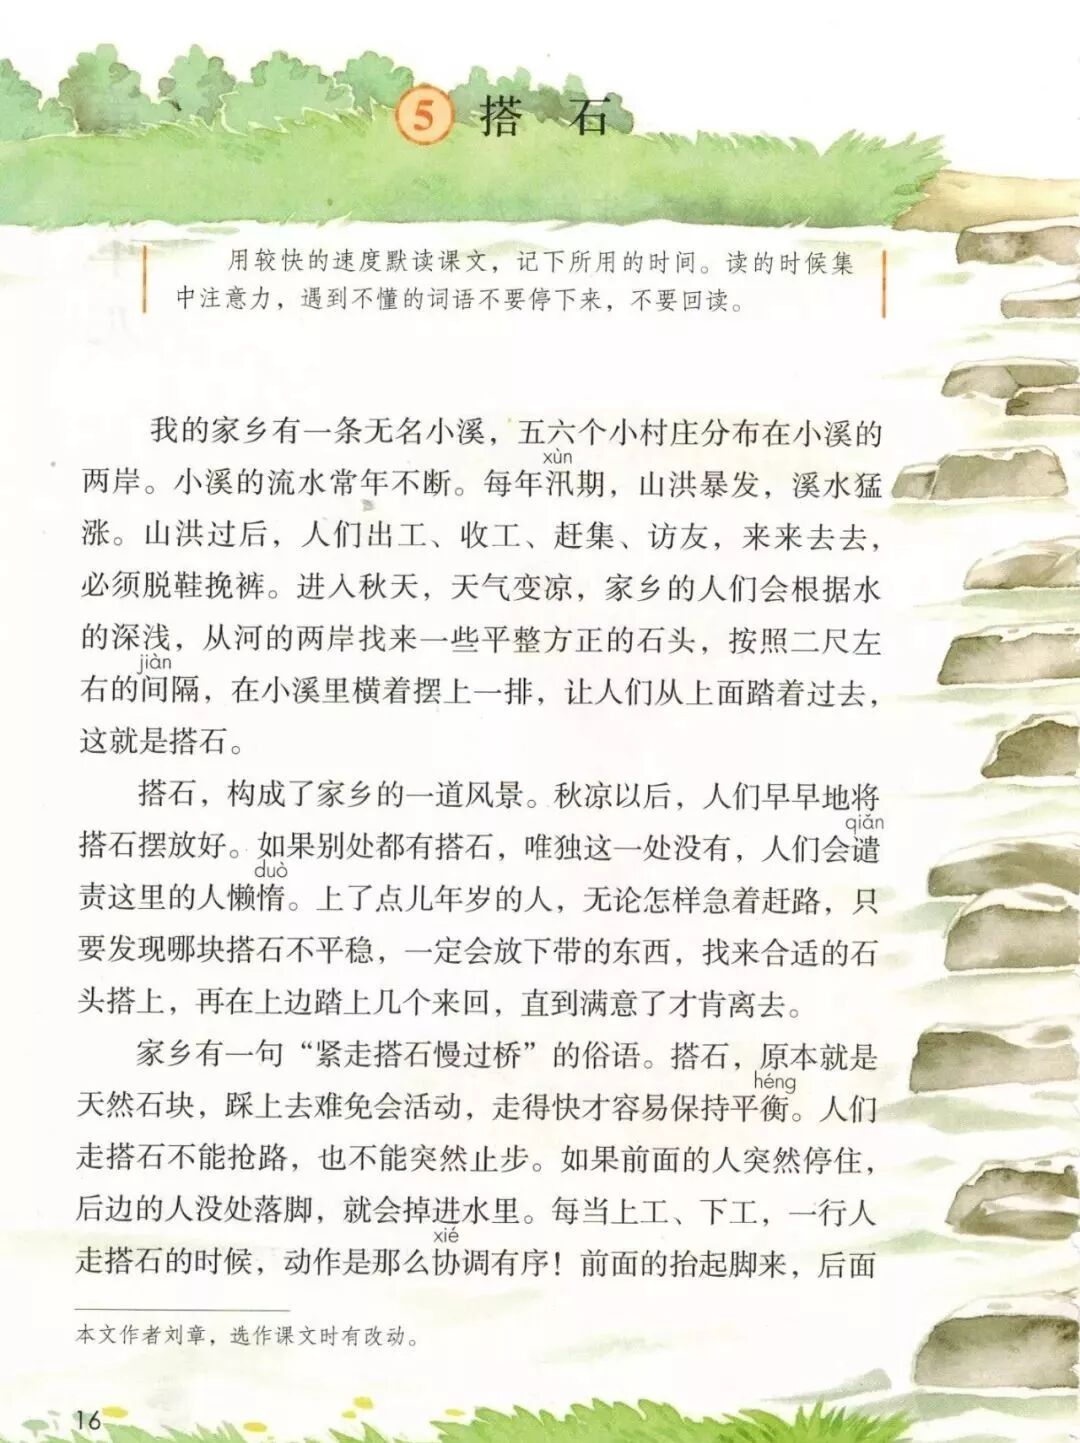 5 搭 石
用较快的速度默读课文，记下所用的时间。读的时候集
中注意力，遇到不懂的词语不要停下来，不要回读。
我的家乡有一条无名小溪，五六个小村庄分布在小溪的
xùn
两岸。小溪的流水常年不断。每年汛期，山洪暴发，溪水猛
涨。山洪过后，人们出工、收工、赶集、访友，来来去去，
必须脱鞋挽裤。进入秋天，天气变凉，家乡的人们会根据水
的深浅，从河的两岸找来一些平整方正的石头，按照二尺左
jiàn
右的间隔，在小溪里横着摆上一排，让人们从上面踏着过去，
这就是搭石。
搭石，构成了家乡的一道风景。秋凉以后，人们早早地将
qiǎn
搭石摆放好。如果别处都有搭石，唯独这一处没有，人们会谴
duò
责这里的人懒惰。上了点儿年岁的人，无论怎样急着赶路，只
要发现哪块搭石不平稳，一定会放下带的东西，找来合适的石
头搭上，再在上边踏上几个来回，直到满意了才肯离去。
家乡有一句“紧走搭石慢过桥”的俗语。搭石，原本就是
héng
天然石块，踩上去难免会活动，走得快才容易保持平衡。人们
走搭石不能抢路，也不能突然止步。如果前面的人突然停住，
后边的人没处落脚，就会掉进水里。每当上工、下工，一行人
xié
走搭石的时候，动作是那么协调有序！前面的抬起脚来，后面
本文作者刘章，选作课文时有改动。
16